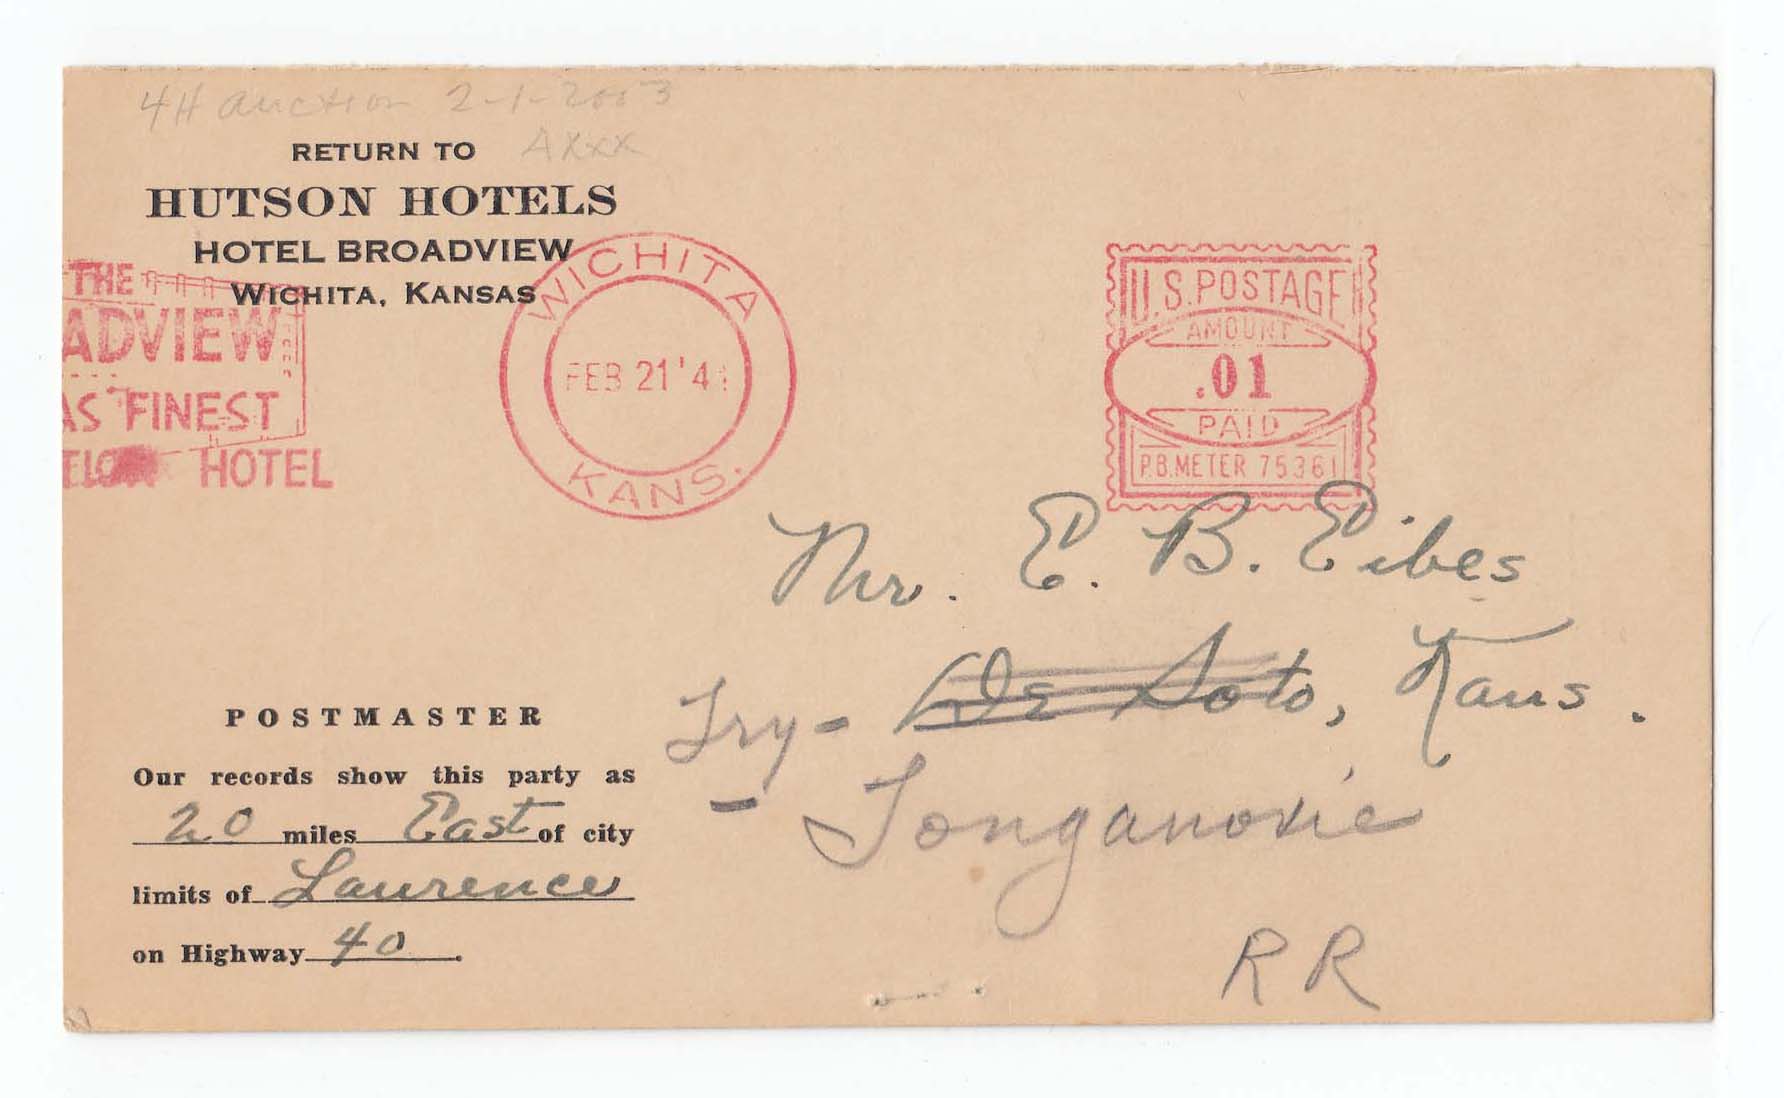 4H auction 2-1-2003
AXxx
RETURN TO
HUTSON HOTELS
HOTEL BROADVIEW
WICHITA, KANSAS
THE
ADVIEW
AS FINEST
HOTEL
WICHITA
FEB 21 '4
KANS.
U.S. POSTAGE
AMOUNT
.01
PAID
P.B. METER 75361
Mr. E. B. Eibes
Try - De Soto, Kans.
- Tonganoxie
RR
POSTMASTER
Our records show this party as
20 miles East of city
limits of Lawrence
on Highway 40.